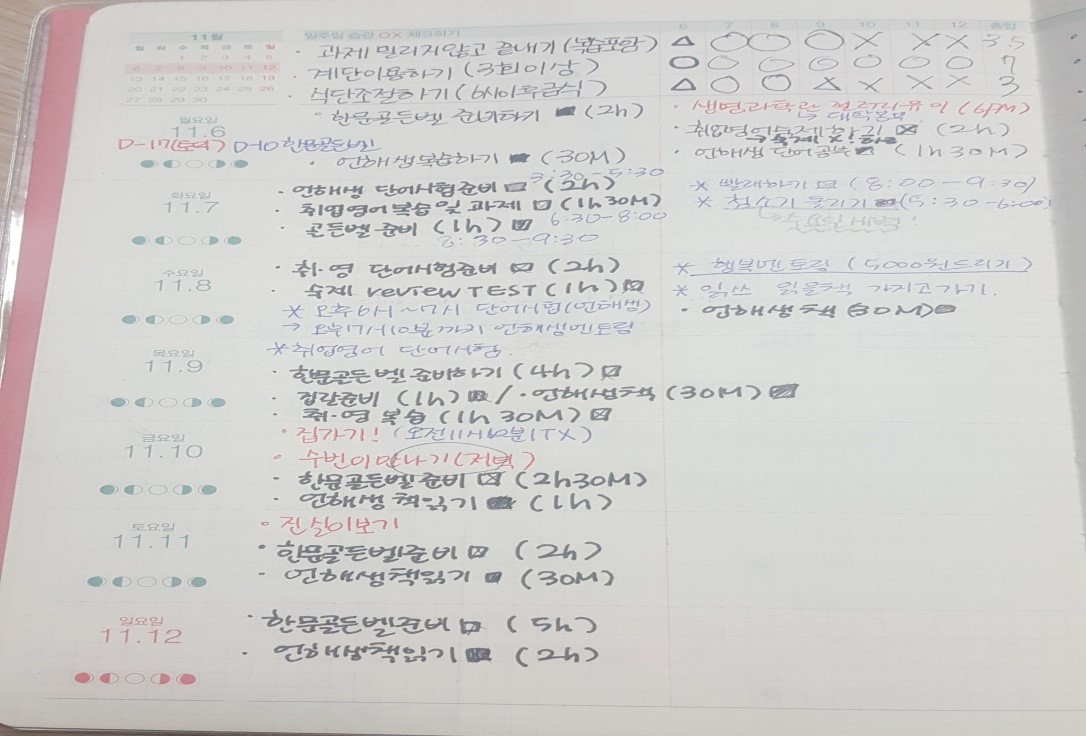 11월
월 화 수 목 금 토 일
1 2 3 4 5
6 7 8 9 10 11 12
13 14 15 16 17 18 19
20 21 22 23 24 25 26
27 28 29 30
일주일 습관 OX 체크하기 6 7 8 9 10 11 12 총합
· 과제 밀리지않고 끝내기 (복습포함) △ ○ ○ ○ X X X 3.5
· 계단이용하기 (3회이상) ○ ○ ○ ○ ○ ○ ○ 7
· 식단조절하기 (6시이후금식) △ ○ ○ △ X X X 3
월요일
11.6
D-17(토익) D-10 한문골든벨
· 한문골든벨 준비하기 (2h)
· 언해생복습하기 (30M)
· 생명과학관 (6PM)
· 취업영어숙제하기 (2h)
· 언해생 단어공부 (1h 30M)
화요일
11.7
· 언해생 단어시험준비 (2h) 3:30-5:30
· 취업영어복습및 과제 (1h 30M)
· 골든벨준비 (1h) 6:30-8:00
8:30-9:30
* 빨래하기 (8:00-9:30)
* 청소기 돌리기 (5:30-6:00)
수요일
11.8
· 취·영 단어시험준비 (2h)
· 숙제 review TEST (1h)
* 오후6시~7시 단어시험(언해생)
→ 오후7시10분까지 언해생멘토링
* 행복멘토링 (5000원드리기)
* 읽쓰 읽을책 가지고가기.
· 언해생책 (30M)
목요일
11.9
*취업영어 단어시험.
· 한문골든벨준비하기 (4h)
· 집갈준비 (1h) / · 언해생책 (30M)
· 취·영 복습 (1h 30M)
금요일
11.10
· 집가기! (오전11시62분ITX)
· 수빈이만나기(저녁)
· 한문골든벨준비 (2h30M)
· 언해생책읽기 (1h)
토요일
11.11
· 진실이보기
· 한문골든벨준비 (2h)
· 언해생책읽기 (30M)
일요일
11.12
· 한문골든벨준비 (5h)
· 언해생책읽기 (2h)